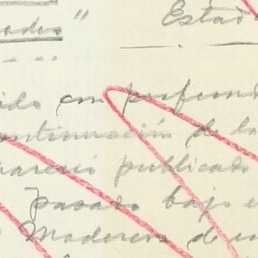 Estad
ados
ido con profund
ontinuación de la
areció publicado
pasado bajo e
Maderera de